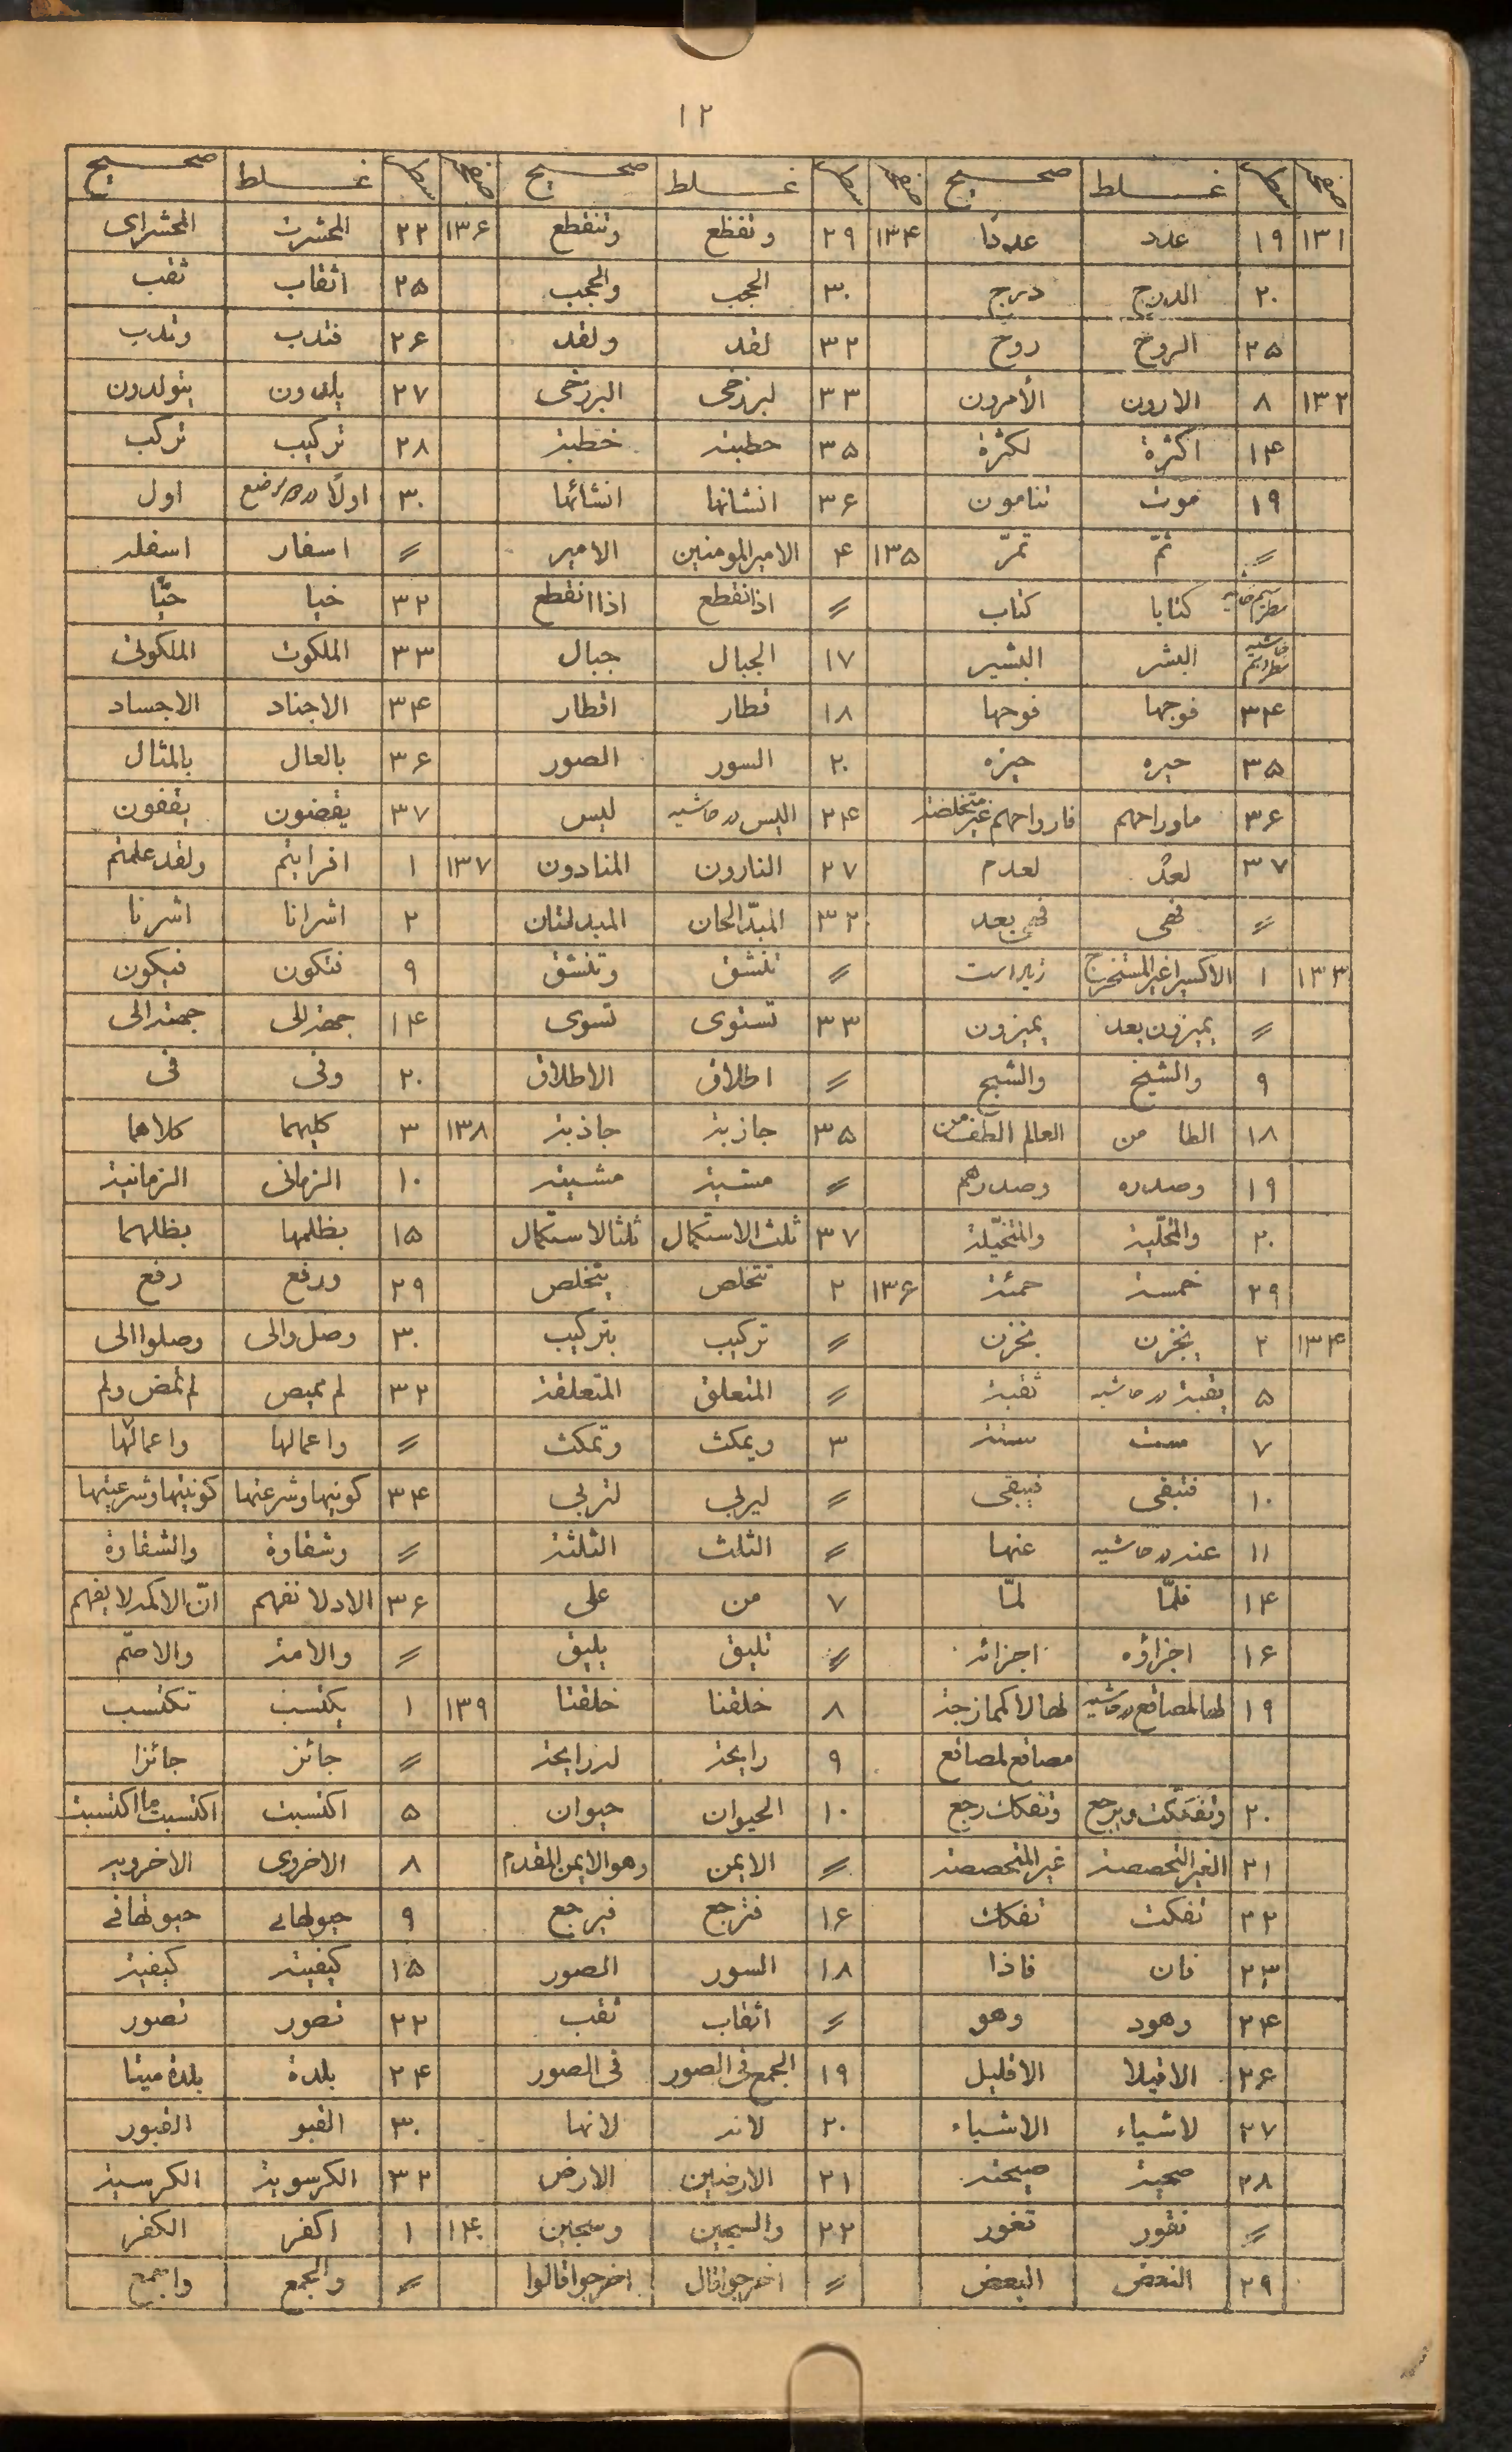 ١٢
صفحه سطر غلط صحیح صفحه سطر غلط صحیح صفحه سطر غلط صحیح
١٣١ ١٩ عدد عددًا ١٣۴ ٢٩ وتقطع وتنقطع ١٣۶ ٢٢ المحشرت المحشرای
٢٠ المدرج درج ٣٠ الحجب والحجب ٢۵ اثقاب ثقب
٢۵ الروح روح ٣٢ لقد ولقد ٢۶ فتدب وتدب
١٣٢ ٨ الارون الأمرون ٣٣ لبرزخی البرزخی ٢٧ یلدون یتولدون
١۴ اکثرة لکثرة ٣۵ حطیة خطیة ٢٨ ترکیب ترکب
١٩ موت تنامون ٣۶ انشانها انشائها ٣٠ اولًا اول
〃 ثمّ تمرّ ١٣۵ ۴ الامیرالمومنین الامیر 〃 اسفار اسفله
کتابا کتاب 〃 اذانقطع اذاانقطع ٣٢ خبا حبًّا
البشر البشیر ١٧ الجبال جبال ٣٣ الملکوت الملکوتی
٣۴ فوجها فوحها ١٨ قطار اقطار ٣۴ الاجناد الاجساد
٣۵ حیره حیزه ٢٠ السور الصور ٣۶ بالعال بالمثال
٣۶ ماوراحهم فارواحهم غیرمتخلصة ٢۴ الیس در حاشیه لیس ٣٧ یقضون یقفون
٣٧ لعد لعدم ٢٧ النارون المنادون ١٣٧ ١ افرایتم ولقد علمتم
〃 فهی فهی بعد ٣٢ المبدّالحان المبدلتان ٢ اشرانا اشرنا
١٣٣ ١ الاکسیراغیرالمستخرج زیاد است 〃 تنشق وتنشق ٩ فتکون فیکون
〃 یمیزون بعد یمیزون ٣٣ تستوی تسوی ١۴ جهة للی جهة الی
٩ والشیخ والشبح 〃 اطلاق الاطلاق ٢٠ وفی فی
١٨ الطا من ٣۵ جازبة جاذبة ١٣٨ ٣ کلیهما کلاهما
١٩ وصدره وصدرهم 〃 مشیة مشیته ١٠ الزمانی الزمانیة
٢٠ والمخلّیة والمتخیّلة ٣٧ ثلث الاستکمال ثلثا لاستکمال ١۵ بظلمها بظلهما
٢٩ خمسة حمئة ١٣۶ ٢ تتخلص یتخلص ٢٩ ودفع دفع
١٣۴ ٢ یخزن نخزن 〃 ترکیب بترکیب ٣٠ وصل والی وصلوا الی
۵ یقبة در حاشیه ثقبة 〃 المتعلق المتعلقة ٣٢ لم یمیص لم تمض ولم
٧ ست ستة ٣ ویمکث وتمکث 〃 واعمالها واعمالها
١٠ فتبقی فیبقی 〃 لیربی لتربی ٣۴ کونیها وشرعتها کونیتها وشرعیتها
١١ عنه در حاشیه عنها 〃 الثلث الثلثة 〃 وشقاوة والشقاوة
١۴ فلمّا لمّا ٧ من علی ٣۶ الاد لا تفهم انّ الاکمه لا یفهم
١۶ اجزاؤه اجزائه 〃 تلیق یلیق 〃 والامة والاصمّ
١٩ ٨ خلقنا خلقتا ١٣٩ ١ یکتسب تکتسب
مصاقع لمصاقع ٩ رایحة لدرایحة 〃 جائز جائزا
٢٠ وتفکّکت ویرجع وتفکک رجع ١٠ الحیوان حیوان ۵ اکتسبت اکتسبت ما اکتسبت
٢١ الغیرالتحصصة غیرالمتحصصة 〃 الایمن وهوالایمن المقدم ٨ الاخروی الاخرویه
٢٢ تفکت تفکک ١۶ فترجع فیرجع ٩
٢٣ فان فاذا ١٨ السور الصور ١۵ کیفیته کیفیة
٢۴ وهود وهو 〃 اثقاب ثقب ٢٢ تصور تصور
٢۶ الاقیلا الاقلیل ١٩ الجمع فی الصور فی الصور ٢۴ بلدة بلدة میتا
٢٧ لاشیاء الاشیاء ٢٠ لانه لانها ٣٠ القبو القبور
٢٨ صحیة صیحة ٢١ الارضین الارض ٣٢ الکرسویة الکرسیة
〃 نقور تغور ٢٢ والسجین وسجین ١۴٠ ١ اکفر الکفر
٢٩ النعض البعض 〃 اخرجوا قال اخرجوا قالوا 〃 والجمع واجمع